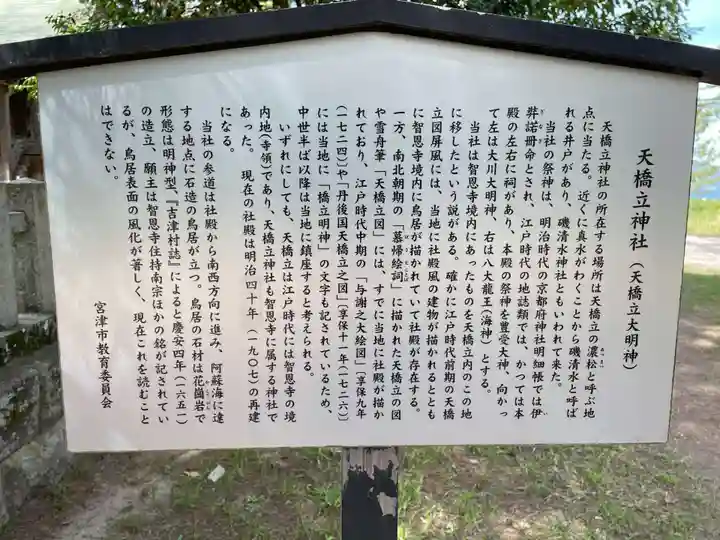 天橋立神社（天橋立大明神）
天橋立神社の所在する場所は天橋立の濃松と呼ぶ地
点に当たる。近くに真水がわくことから磯清水と呼ば
れる井戸があり、磯清水神社ともいわれて来た。
当社の祭神は、明治時代の京都府神社明細帳では伊
弉諾冊命とされ、江戸時代の地誌類では、かつては本
殿の左右に祠があり、本殿の祭神を豊受大神、向かっ
て左は大川大明神、右は八大龍王（海神）とする。
当社は智恩寺境内にあったものを天橋立内のこの地
に移したという説がある。確かに江戸時代前期の天橋
立図屏風には、当地に社殿風の建物が描かれるととも
に智恩寺境内に鳥居が描かれていて社殿が存在する。
一方、南北朝期の「慕帰絵詞」に描かれた天橋立の図
や雪舟筆「天橋立図」には、すでに当地に社殿が描か
れており、江戸時代中期の「与謝之大絵図」（享保九年
（一七二四）や「丹後国天橋立之図」（享保十一年（一七二六）
には当地に「橋立明神」の文字も記されているため、
中世半ば以降は当地に鎮座すると考えられる。
いずれにしても、天橋立は江戸時代には智恩寺の境
内地（寺領）であり、天橋立神社も智恩寺に属する神社で
あった。現在の社殿は明治四十年（一九〇七）の再建
になる。
当社の参道は社殿から南西方向に進み、阿蘇海に達
する地点に石造の鳥居が立つ。鳥居の石材は花崗岩で
形態は明神型、『吉津村誌』によると慶安四年（一六五一）
の造立、願主は智恩寺住持南宗ほかの銘が記されてい
るが、鳥居表面の風化が著しく、現在これを読むこと
はできない。
宮津市教育委員会